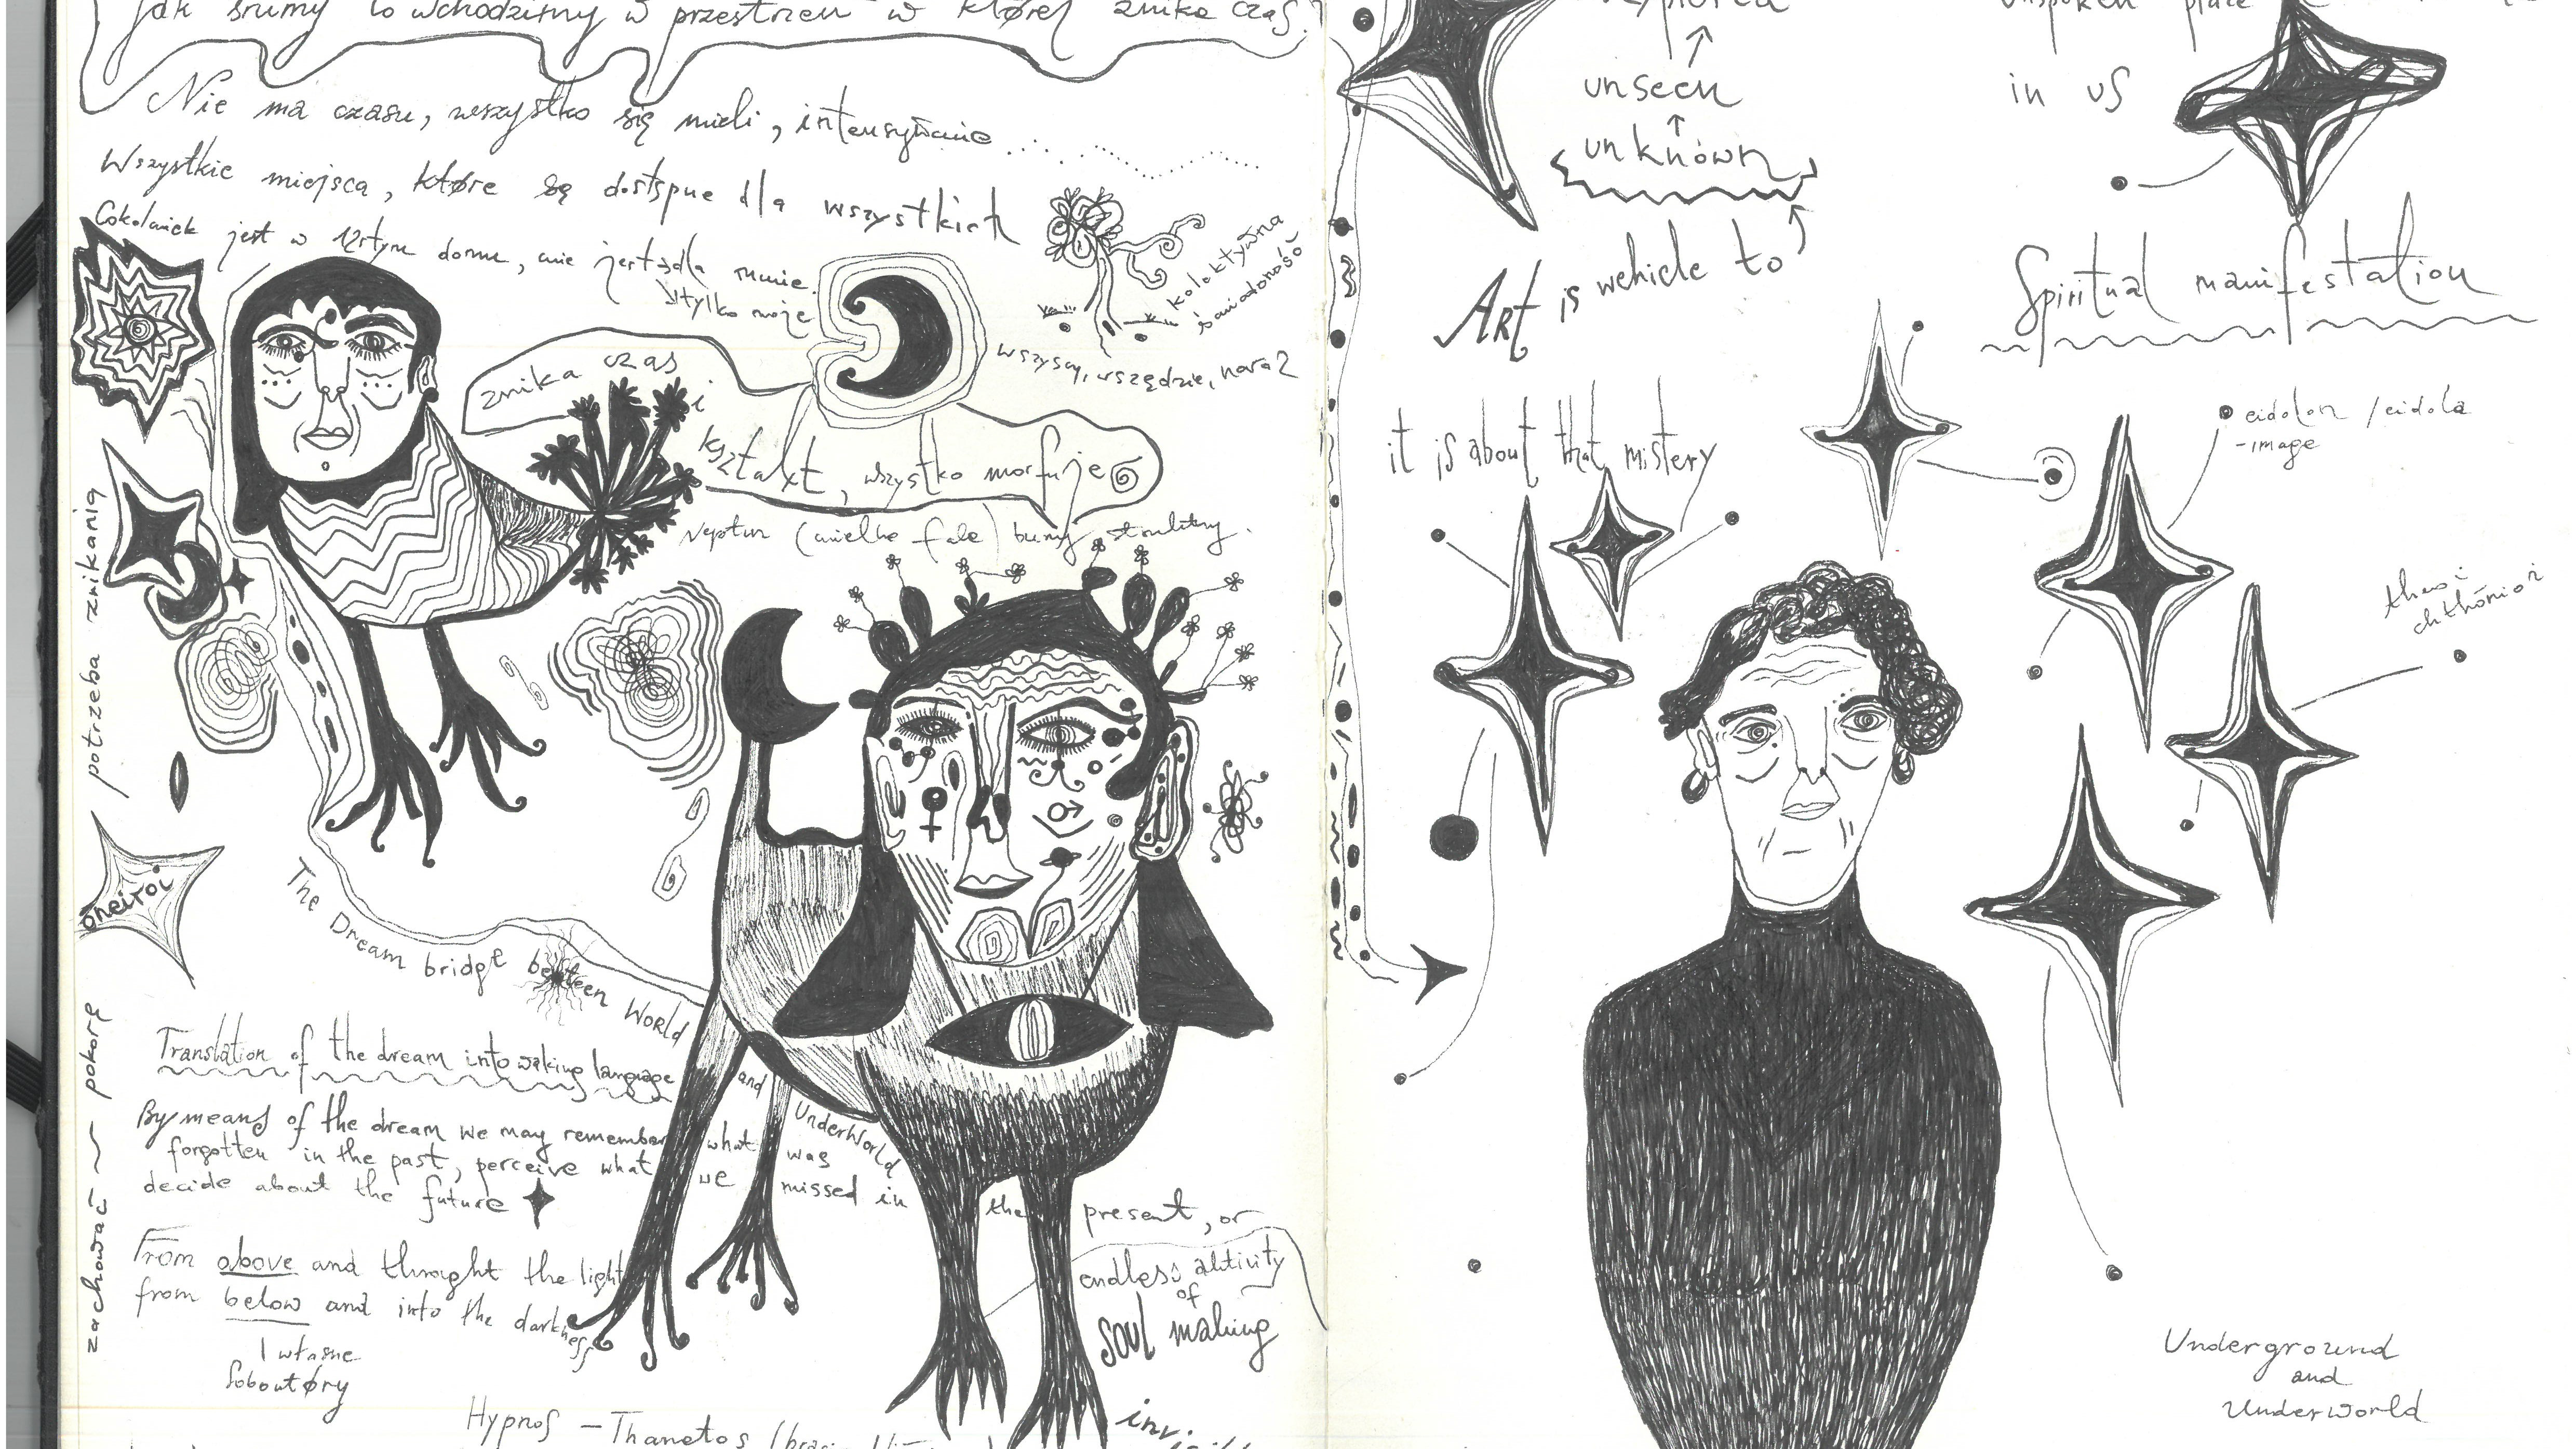 Jak śnimy to wchodzimy w przestrzeń w której znika czas?
Nie ma czasu, wszystko się mieli, intensywnie
Wszystkie miejsca, które są dostępne dla wszystkich
Cokolwiek jest w 12stym domu, nie jest dla mnie.
tylko moje
kolektywna
świadomość
wszyscy, wszędzie, naraz
znika czas
i
kształt, wszystko morfuje
Neptun (wielkie fale) burzy struktury.
potrzeba znikania
zachować ~ pokorę
óneiroi
The Dream bridge between World
and
UnderWorld
Translation of the dream into waking language
By means of the dream we may remember what was
forgotten in the past, perceive what we missed in the present, or
decide about the future
From above and throught the light
from below and into the darkness
endless aktivity
of
SOUL making
I własne
Hypnos – Thanetos
unseen
unknown
Art is wehicle to
it is about that mistery
unspoken place
in us
Spiritual manifestation
eidolon / eidola
-image
theoi
chthónioi
Underground
and
Underworld